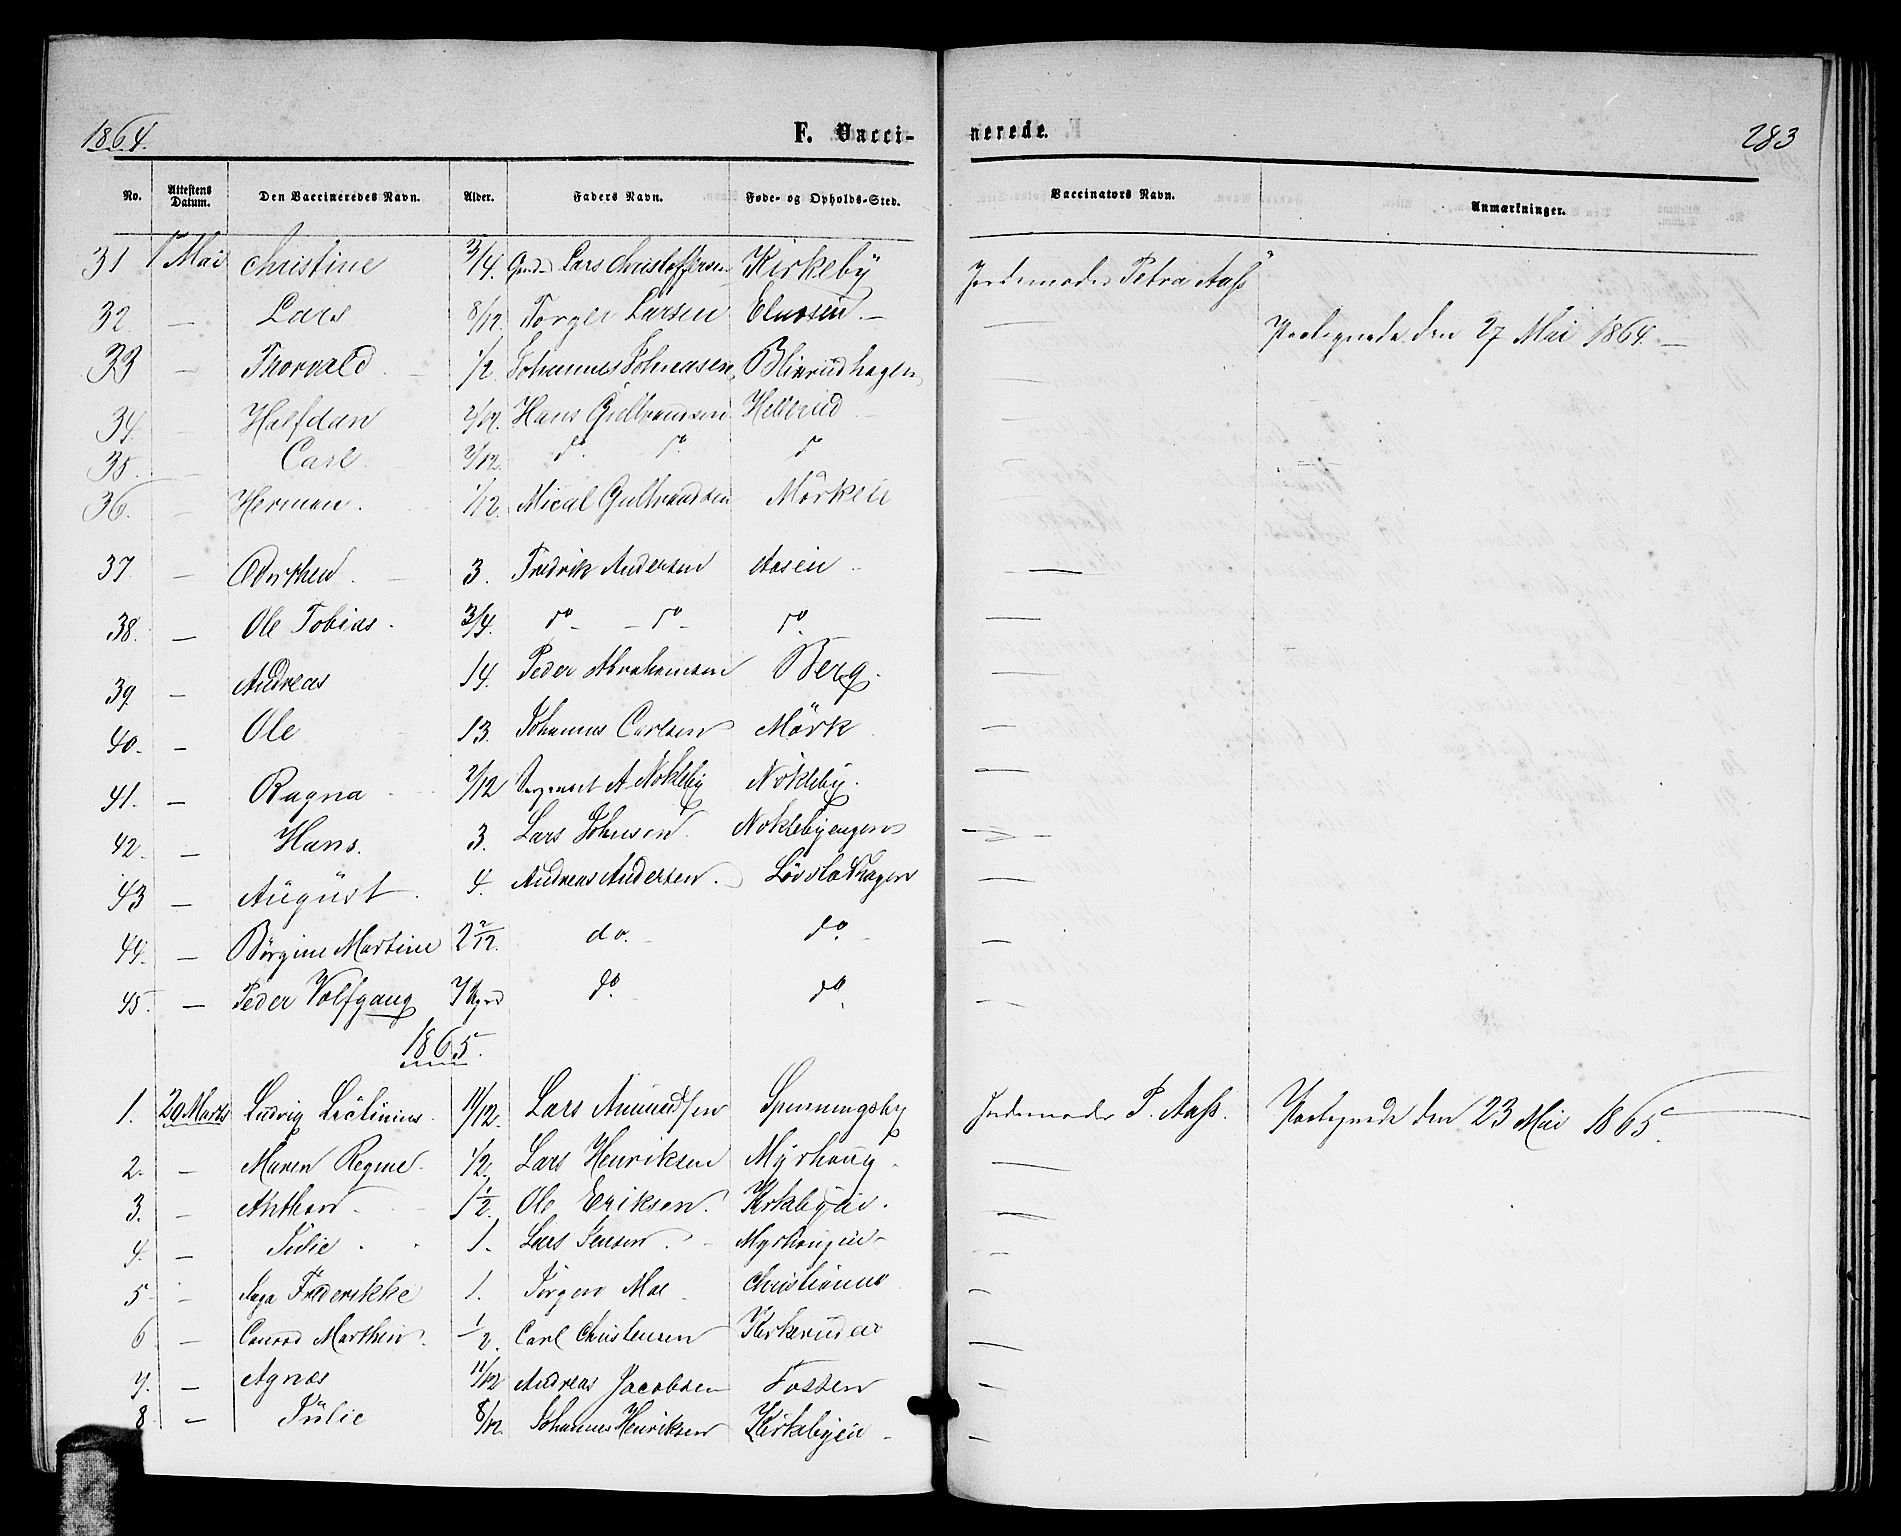 1864.
F. Vacci-
nerede.
283
No. Attestens Datum. Den Vaccineredes Navn. Alder. Faders Navn. Føde- og Opholds-Sted. Vaccinators Navn. Anmærkninger.
31 1 Mai Christine 3/4. Lars Christoffersen Kirkeby Jordemoder Petra Aass
32 — Lars 8/12. Torger Larsen —
Paategnede den 27 Mai 1864. —
33 — Thorvald. 1/2. Johannes Johnasen, Blixrudhagen —
34. — Halfdan 2/12. Hans Gulbransen Hellerud —
35. — Carl. 2/12. do do do —
36. — Herman. 1/12. Mical Gulbrandsen Mörkeie
37 — 3. Fredrik Andersen Aasen —
38. — Ole Tobias. 3/4. do — do — do —
39. — Andreas 14. Peder Abrahamsen Berg. —
40. — Ole 13. Johannes Carlsen Mörk —
41. — Ragna 2/12 A Nokleby Nokleby. —
42. — Hans. 3. Lars Johnsen. Noklebyengen —
43 — August. 4. Andreas Andersen. Lövstadhagen —
44. — Börgine Martine 2 2/12. do. do. —
45. — Peder Volfgang 7 do. do. —
1865.
1. 20 Marts Ludvig 11/12. Lars Amundsen Spenningsby Jordemoder P. Aass. Paategnede den 23 Mai 1865.
2. — Maren Regine. 1/2. Lars Henriksen Myrhaug. —
3. — Anthon. 1 1/2. Ole Eriksen. Kirkebyeie. —
4. — Julie. 1. Lars Jensen. Myrhaugeie —
5 — Aaga Frederikke 1. Jörgen Moe Christiania —
6 — Conrad Marthin. 1/2. Carl Christensen Kirkerudeie —
7. — Agnes 11/12 Andreas Jacobsen Fossen —
8. — Julie 8/12. Johannes Henriksen Kirkebyeie —